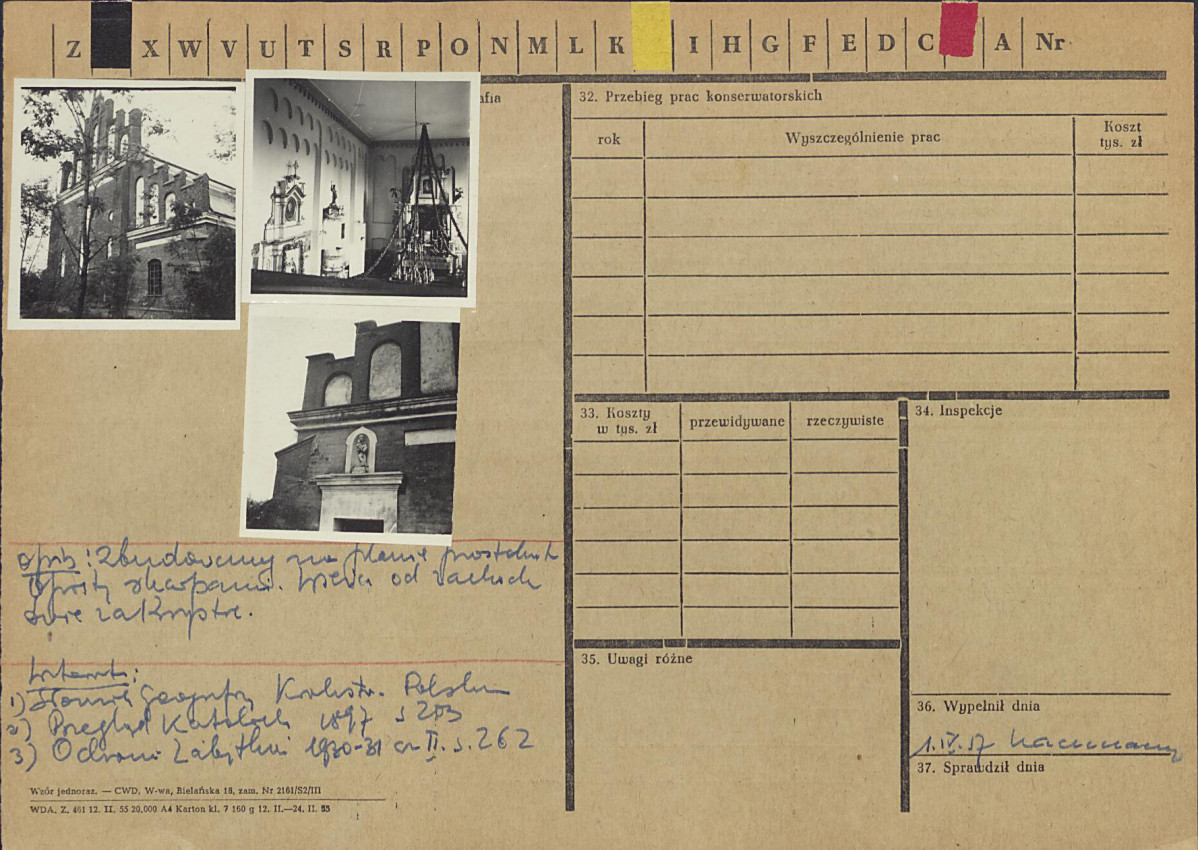 Z X W V U T S R P O N M L K I H G F E D C A Nr
afia
32. Przebieg prac konserwatorskich
rok Wyszczególnienie prac Koszt
tys. zł
33. Koszty
w tys. zł
przewidywane rzeczywiste
34. Inspekcje
opis: Zbudowany na planie prostokąta
skarpami. od zachodu
zakrystie.
35. Uwagi różne
1) Słownik Geografy Królestw. Polskie
2) Przegląd Katolick 1897 s 203
3) Ochrona Zabytków 1930-31 cz II. s. 262
36. Wypełnił dnia
1. IV. 57
37. Sprawdził dnia
Wzór jednoraz. — CWD, W-wa, Bielańska 18, zam. Nr 2161/S2/III
WDA. Z. 461 12. II. 55 20.000 A4 Karton kl. 7 160 g 12. II.—24. II. 55